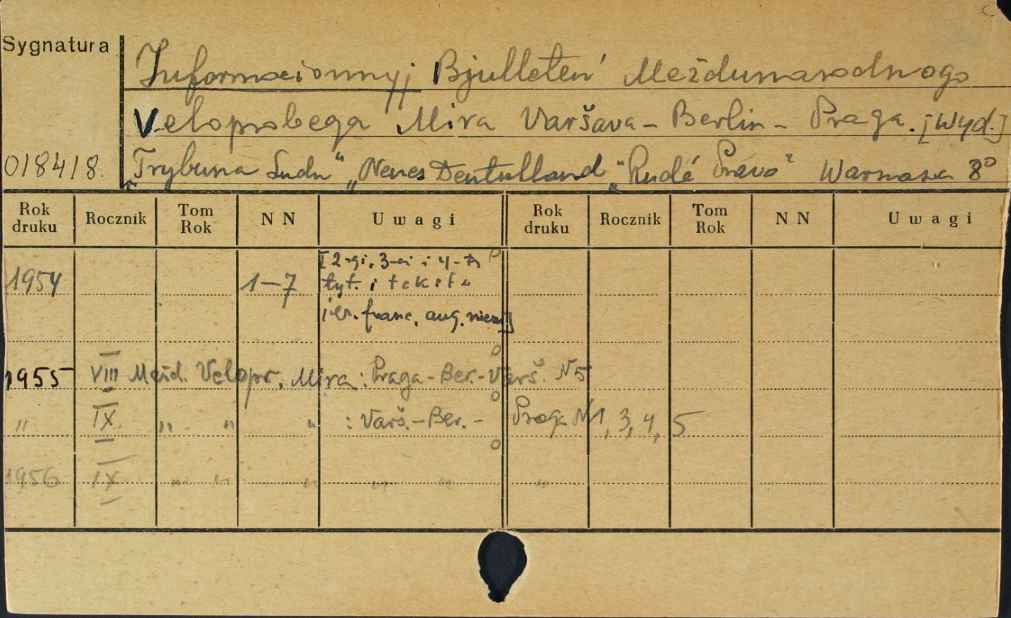 Sygnatura
Informacionnyj Bjulleten' Meždunarodnogo
Veloprobega Mira Varšava - Berlin - Praga. [Wyd.]
018418. „Trybuna Ludu" „Neues Deutschland" „Rudé Právo" Warszawa 8°
Rok druku Rocznik Tom Rok NN Uwagi Rok druku Rocznik Tom Rok NN Uwagi
[2-gi, 3-ci i 4-ty
1954 1-7 tyt. i tekst w
jęz. franc. ang. niem.]
1955 VIII Mežd. Velopr. Mira: Praga-Ber.-Varš. N5
" IX. " " " : Varš.-Ber.- Praga N1, 3, 4, 5
1956 IX " " " " " "